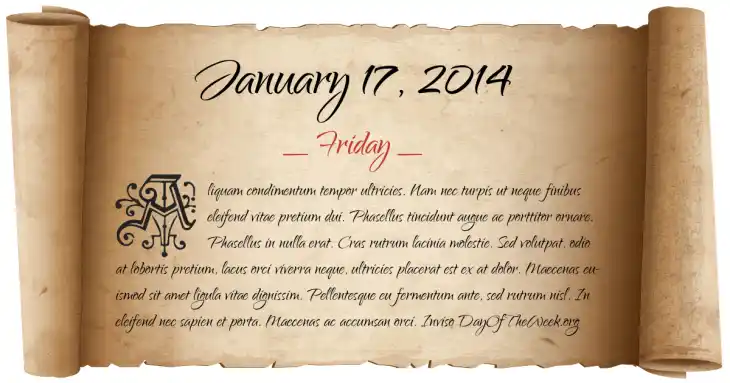 January 17, 2014
__ Friday __
Aliquam condimentum tempor ultricies. Nam nec turpis ut neque finibus
eleifend vitae pretium dui. Phasellus tincidunt augue ac porttitor ornare.
Phasellus in nulla erat. Cras rutrum lacinia molestie. Sed volutpat, odio
at lobortis pretium, lacus orci viverra neque, ultricies placerat est ex at dolor. Maecenas eu-
ismod sit amet ligula vitae dignissim. Pellentesque eu fermentum ante, sed rutrum nisl. In
eleifend nec sapien et porta. Maecenas ac accumsan orci. Inviso DayOfTheWeek.org